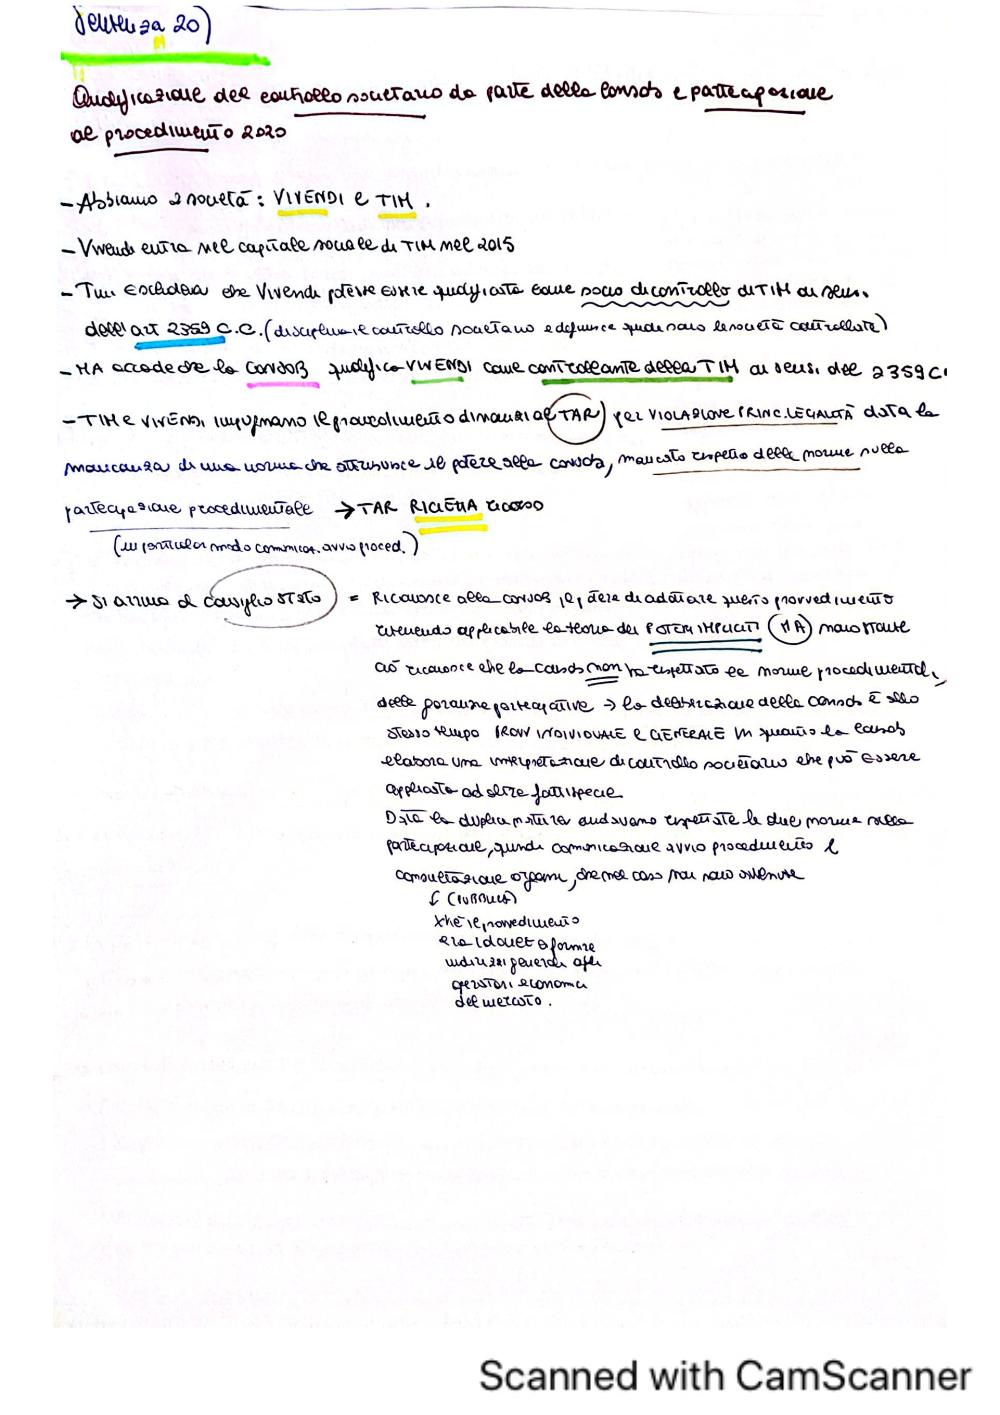 Sentenza 20)
Qualificazione del controllo societario da parte della Consob e partecipazione
al procedimento 2020
- Abbiamo 2 società: VIVENDI e TIM.
- Vivendi entra nel capitale sociale di TIM nel 2015
- Tim escludeva che Vivendi potesse essere qualificata come socio di controllo di TIM ai sensi
dell'art 2359 C.C. (disciplina il controllo societario e definisce quali sono le società controllate)
- MA accade che la CONSOB qualifica VIVENDI come controllante della TIM ai sensi del 2359 C
- TIM e VIVENDI impugnano il provvedimento dinanzi al TAR per VIOLAZIONE PRINC. LEGALITÀ data la
mancanza di una norma che attribuisce il potere alla consob, mancato rispetto delle norme sulla
partecipazione procedimentale → TAR RIGETTA ricorso
(in particolar modo comunicaz. avvio proced.)
→ Si arriva al consiglio STATO = Riconosce alla CONSOB il potere di adottare questo provvedimento
ritenendo applicabile la teoria dei POTERI IMPLICITI (MA) nonostante
ciò riconosce che la consob non ha rispettato le norme procedimentali
delle garanzie partecipative → la deliberazione della Consob è allo
stesso tempo PROVV INDIVIDUALE e GENERALE in quanto la Consob
elabora una interpretazione di controllo societario che può essere
applicata ad altre fattispecie
Data la duplice natura andavano rispettate le due norme sulla
partecipazione, quindi comunicazione avvio procedimento e
consultazione organi, che nel caso non sono avvenute
(PUBBLICA)
xké il provvedimento
era idoneo a fornire
indirizzi generali agli
operatori economici
del mercato.
Scanned with CamScanner